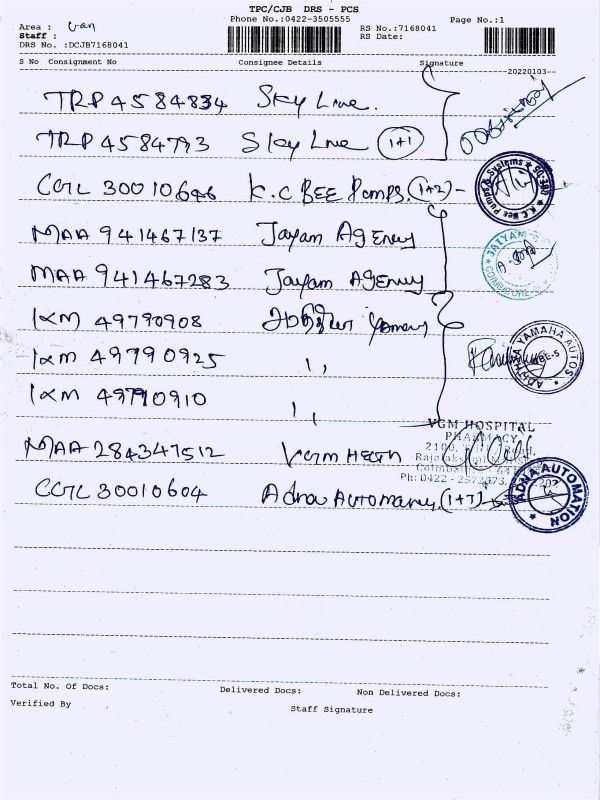 TPC/CJB DRS - PCS
Phone No.:0422-3505555
Page No.:1
Area : Van
Staff :
DRS No. :DCJB7168041
RS No.:7168041
RS Date:
S No Consignment No Consignee Details Signature
20220103
TRP 4584834 Sky Line.
TRP 4584793 Sky Line (1+1)
CGTL 30010646 K.C BEE Pumps. (1+2)
K.C. Bee Pumps & Systems
MAA 941467137 Jayam Agency
JAIYAM
COIMBATORE
MAA 941467283 Jayam Agency
IXM 49790908
IXM 49790925 ,,
ADHITHYA YAMAHA AUTOS
CBE-5
IXM 49790910 ,,
VGM HOSPITAL
PHARMACY
2100,
MAA 284347512 VGM Health
Coimbatore
Ph: 0422 - 2572073,
CGTL 30010604 Adna Automation (1+7)
ADNA AUTOMATION
Total No. Of Docs: Delivered Docs: Non Delivered Docs:
Verified By Staff Signature